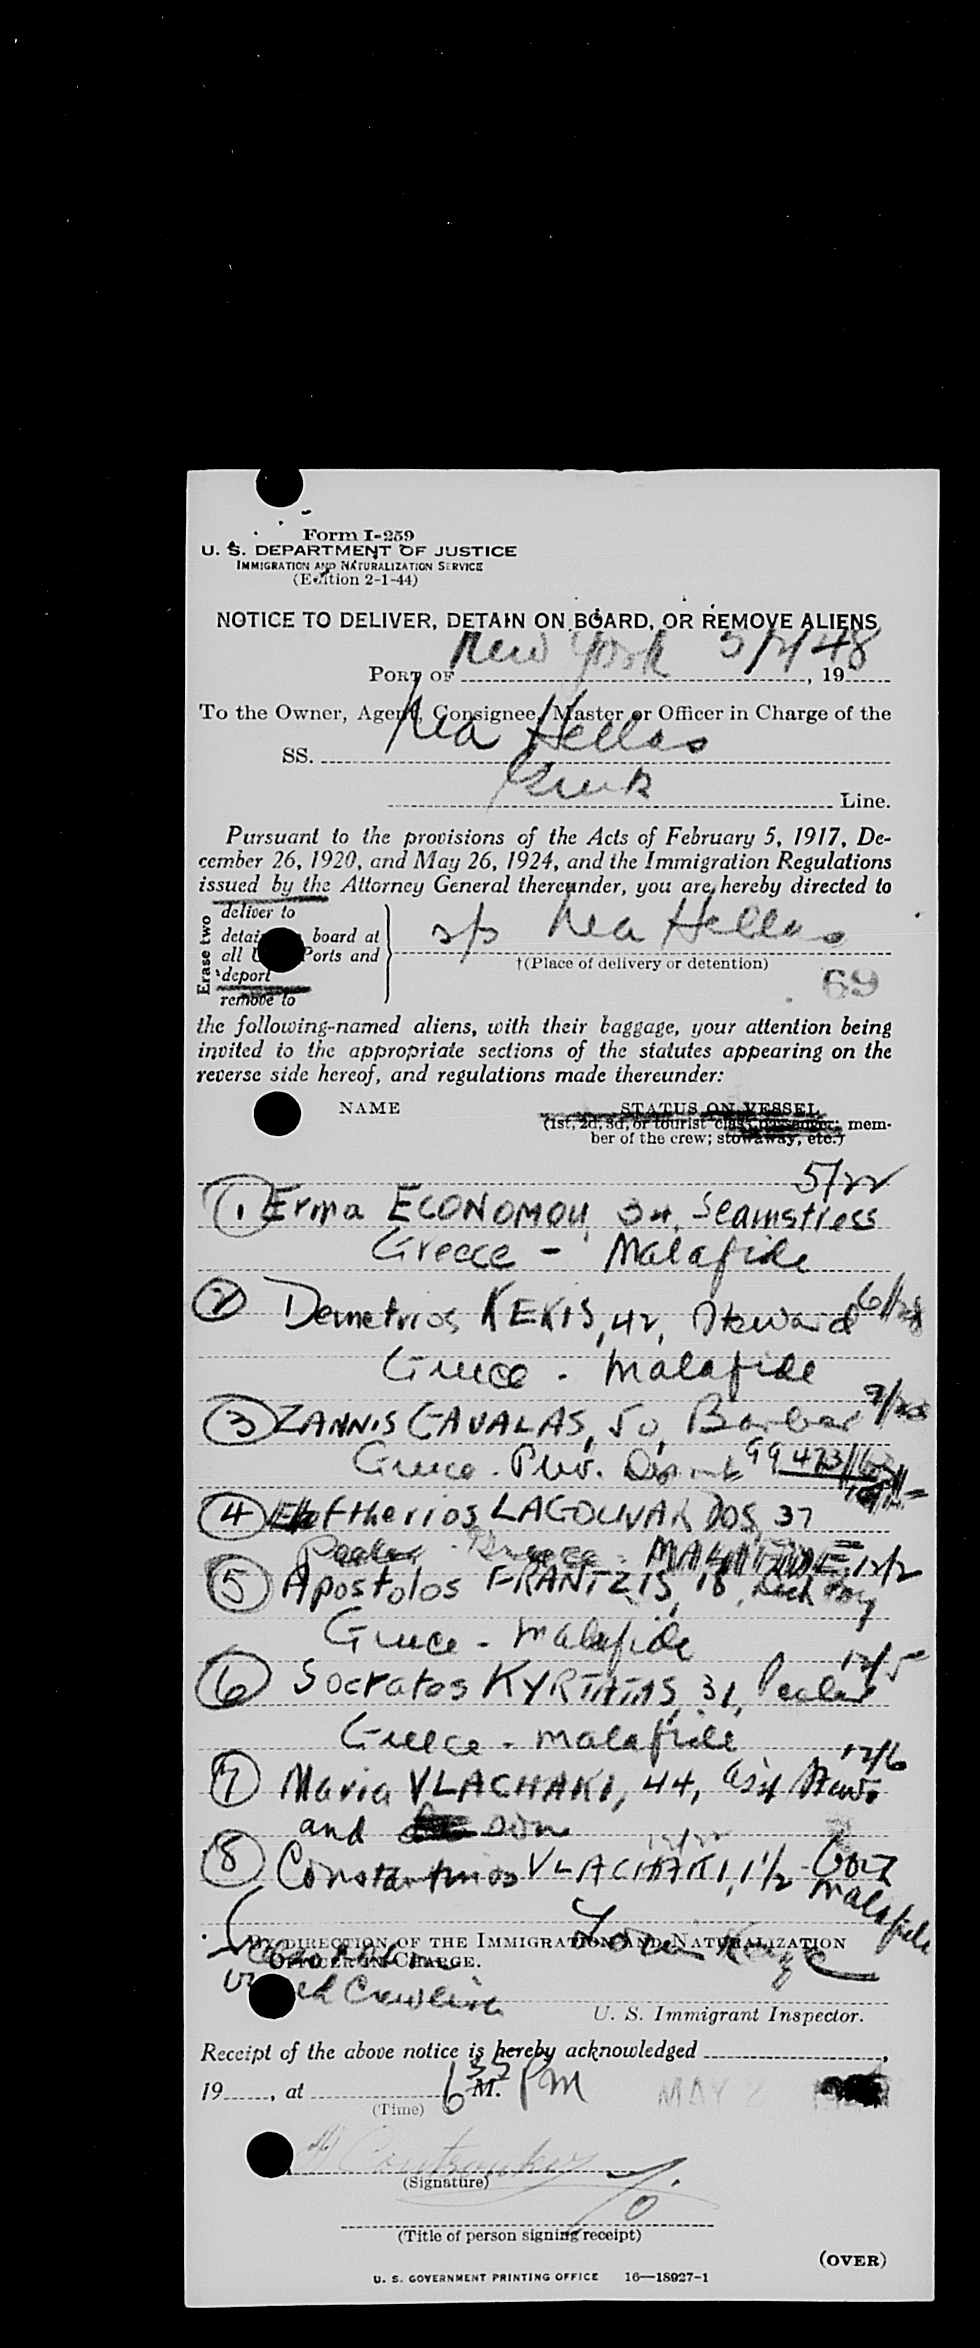 Form I-259
U. S. DEPARTMENT OF JUSTICE
IMMIGRATION AND NATURALIZATION SERVICE
(Edition 2-1-44)
NOTICE TO DELIVER, DETAIN ON BOARD, OR REMOVE ALIENS
PORT OF New York 5/2/48, 19
To the Owner, Agent, Consignee, Master or Officer in Charge of the
SS. Nea Hellas
Greek Line.
Pursuant to the provisions of the Acts of February 5, 1917, De-
cember 26, 1920, and May 26, 1924, and the Immigration Regulations
issued by the Attorney General thereunder, you are hereby directed to
Erase two
deliver to
detain board at
all Ports and
deport
remove to
Nea Hellas
†(Place of delivery or detention)
69
the following-named aliens, with their baggage, your attention being
invited to the appropriate sections of the statutes appearing on the
reverse side hereof, and regulations made thereunder:
NAME STATUS ON VESSEL
(1st, 2d, 3d, or tourist class passenger; mem-
ber of the crew; stowaway, etc.)
5/22
1 ECONOMOU, 34, Seamstress
Greece - Malafide
2 Demetrios KEKIS, 42, Steward
Greece - Malafide
3 ZANNIS GAVALAS, 50, Barber
Greece - Prev.
4 Eleftherios 37
12/2
5 Apostolos FRANTZIS, 18, Deck Boy
Greece - malafide
12/5
6 Socrates 31,
Greece - malafide
12/6
7 Maria VLACHAKI, 44,
and son
8 Constantinos VLACHAKI, 1 1/2
malafide
BY DIRECTION OF THE IMMIGRATION AND NATURALIZATION
OFFICER IN CHARGE.
U. S. Immigrant Inspector.
Receipt of the above notice is hereby acknowledged ,
19 , at 6 35 M. PM MAY 2
(Time)
(Signature)
(Title of person signing receipt)
(OVER)
U. S. GOVERNMENT PRINTING OFFICE 16—18927-1